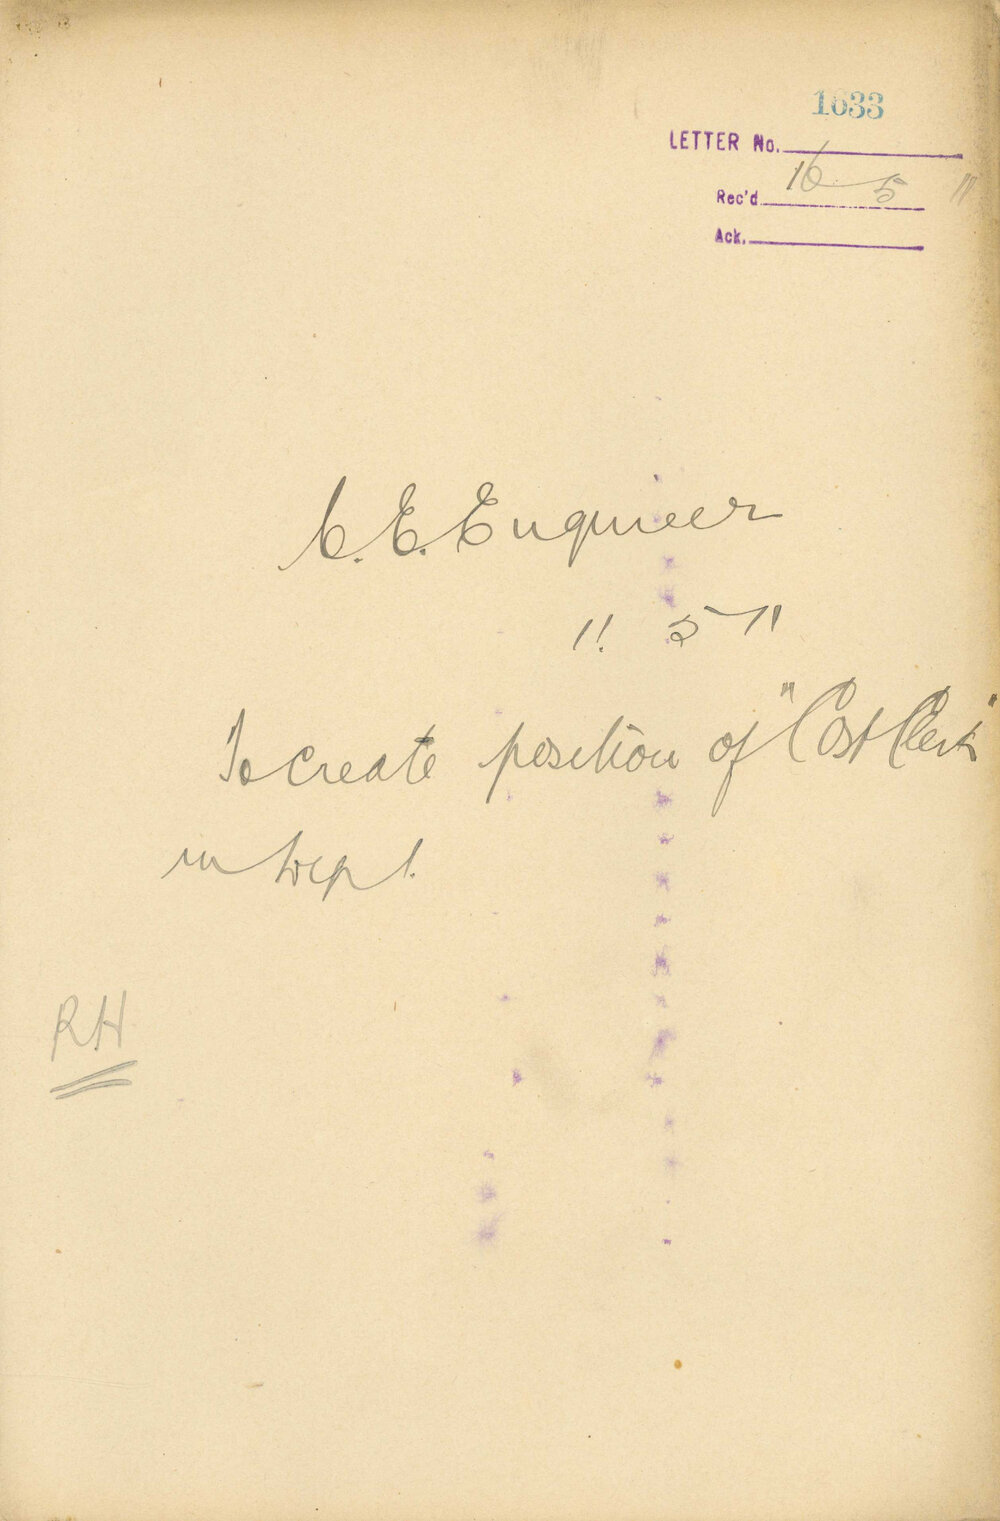 1633
LETTER No.
Rec'd 16 5 11
Ack.
C. E. Engineer
11. 5 11
To create position of "Cost Clerk"
in Dept.
RH